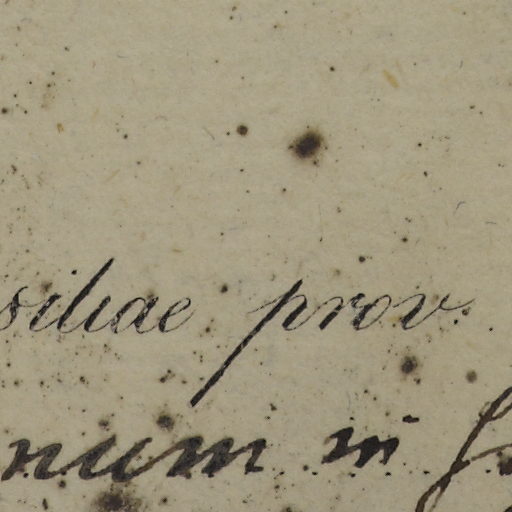 siliae prov.
num in